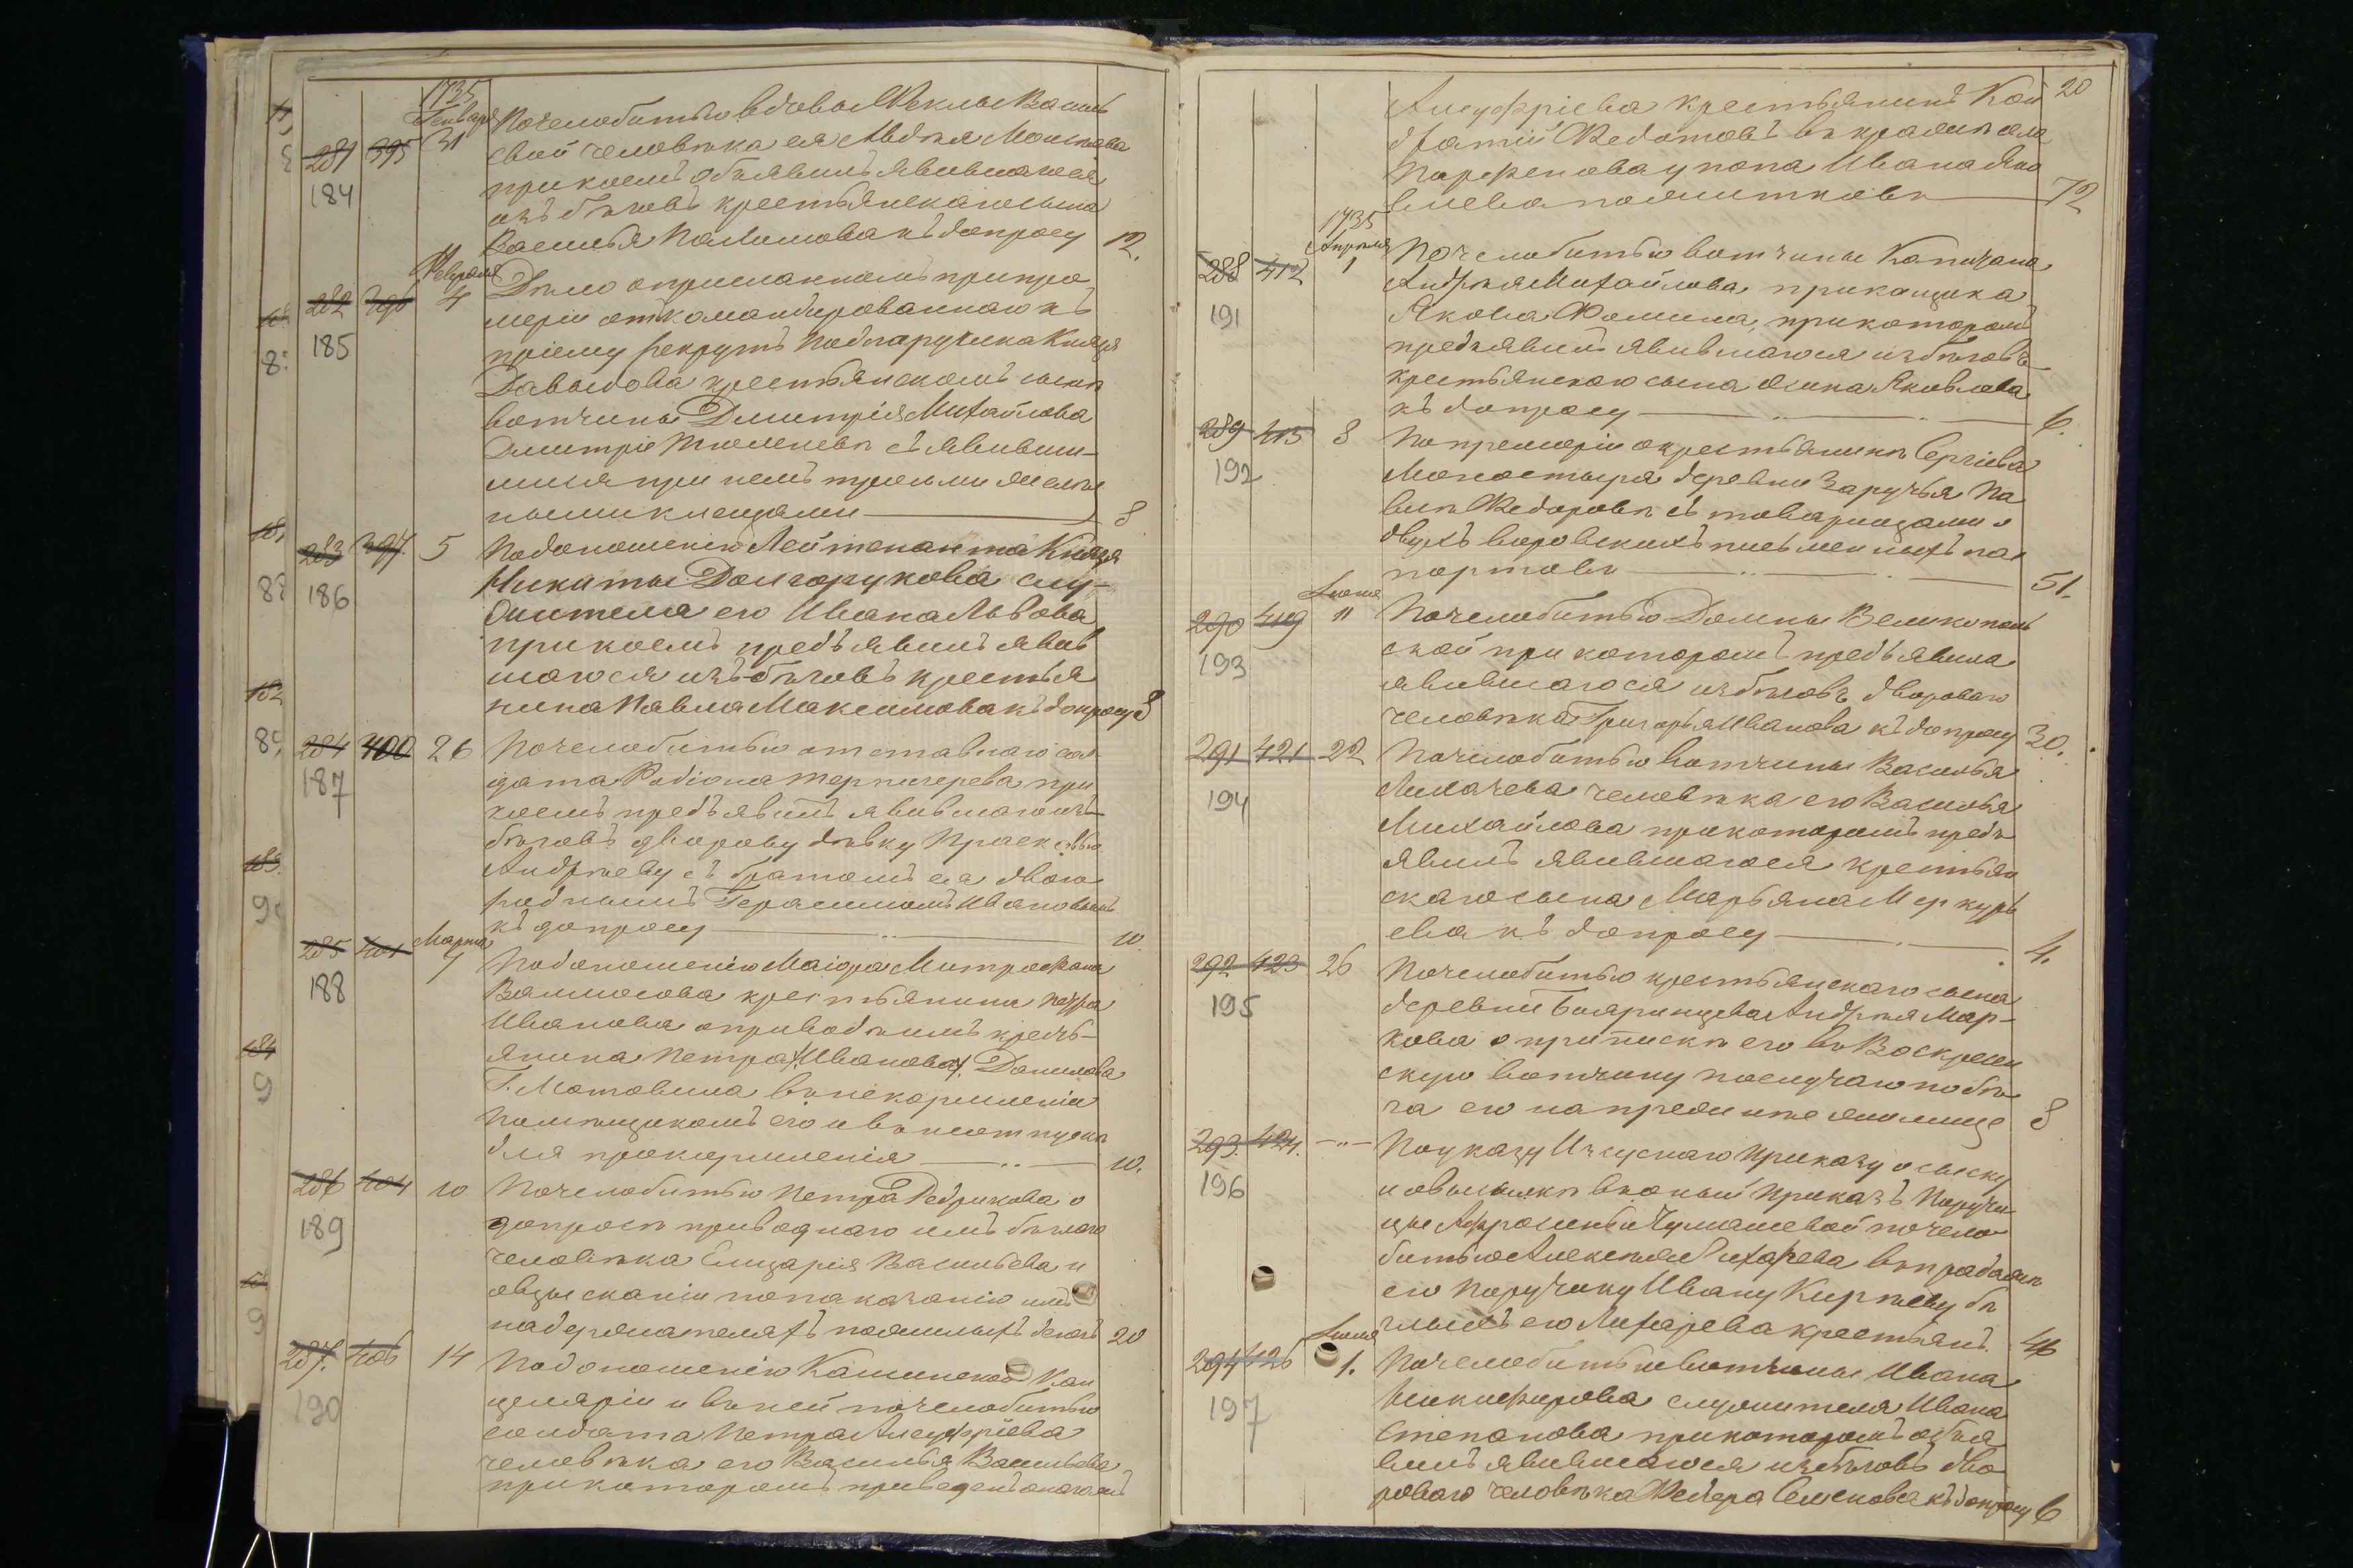 1735
Генваря
281 395 31 По челобитью вдовы Феклы Василь
184 евой человека ея Авдея Моисеева
при коем объявилъ явившагося
изъ бѣговъ крестьянскаго сына
Василья къ допросу 12.
Февраля
282 396 4 Дѣло о присланномъ при про
185 меріи от командированнаго къ
пріему рекрутъ подпоручика Князя
Давыдова крестьянскомъ сынѣ
вотчины Дмитрія Михайлова
Дмитріе съ явивши-
мися при немъ тремя
ными 8
283 397. 5 По доношенію Лейтенанта Князя
186 Никиты Долгорукова слу-
жителя его Ивана Львова
при коемъ предъявилъ явив
шагося изъ бѣговъ крестья
нина Павла Максимова къ допросу 8
284 400 26 По челобитью отставнаго сол
187 дата Родіона при
коемъ предъявилъ явившагося изъ
бѣговъ дворову дѣвку Прасковью
Андрѣеву съ братомъ ея двою
роднымъ Герасимомъ Ивановымъ
къ допросу 10.
Марта
285 401 4 По доношенію Маіора Митрофана
188 крестьянина Петра
Ивановa о приводѣ имъ кресть-
янина Петра Иванова Данилова
Г. Мотовила въ некормленіи
помѣщикомъ его и въ неотпускѣ
для прокормленія 10.
286 404 10 По челобитью Петра Редрикова о
189 допросѣ приводнаго имъ бѣглаго
человѣка Елизарія Васильева и
о взысканіи по показанію имъ
на держателяхъ пожилыхъ денегъ 20
287. 406 14 По доношенію Кашинской Кан
190 целяріи и въ ней по челобитью
солдата Петра Ануфріева
человѣка его Василья Васильева
при которомъ приведенъ онаго
20
Ануфріева крестьянинъ Кон
дратій Федотовъ въ кражѣ села
Парфенова у попа Ивана Яко
влева пожитковъ 72
1735
Апреля
288 412 1 По челобитью вотчины Капитана
191 Андрея Михайлова прикащика
Якова Фомина, при которомъ
предъявилъ явившагося изъ бѣговъ
крестьянскаго сына Осипа Яковлева
къ допросу 6.
289 413 8 По премеріи о крестьянинѣ Сергіева
192 Монастыря деревни Заручья Па
влѣ Федоровѣ съ товарищами о
двухъ воровскихъ письменныхъ па
портовъ 51.
290 419 11 По челобитью Домны Великополь
193 ской при которомъ предъявила
явившагося изъ бѣговъ двороваго
человѣка Григорья Иванова къ допросу 30.
291 421 22 По челобитью вотчины Василья
194 Лихачева человѣка его Василья
Михайлова при которомъ предъ
явилъ явившагося крестьян
скаго сына Марьяна Меркурь
ева къ допросу 4.
292 423 26 По челобитью крестьянскаго сына
195 деревни Бояринцева Андрея Мар-
кова о припискѣ его въ Воскресен
скую вотчину по случаю побѣ
га его на прежнее жилище 8
293. 424. -"- По указу Изъ Суднаго Приказу о сыску
196 и о высылкѣ въ оный Приказъ Поручи-
цы Афросиньи Чумашевой по чело
битью Алексѣя Лихарева въ продажѣ
его Поручику Ивану Кирѣеву бѣ
глыхъ его Лихарева крестьянъ. 46
294 426 1. По челобитью вотчины Ивана
197 Никифорова служителя Ивана
Степанова при которомъ объя
вилъ явившагося изъ бѣговъ дво
роваго человѣка Федора Семенова къ допросу 6